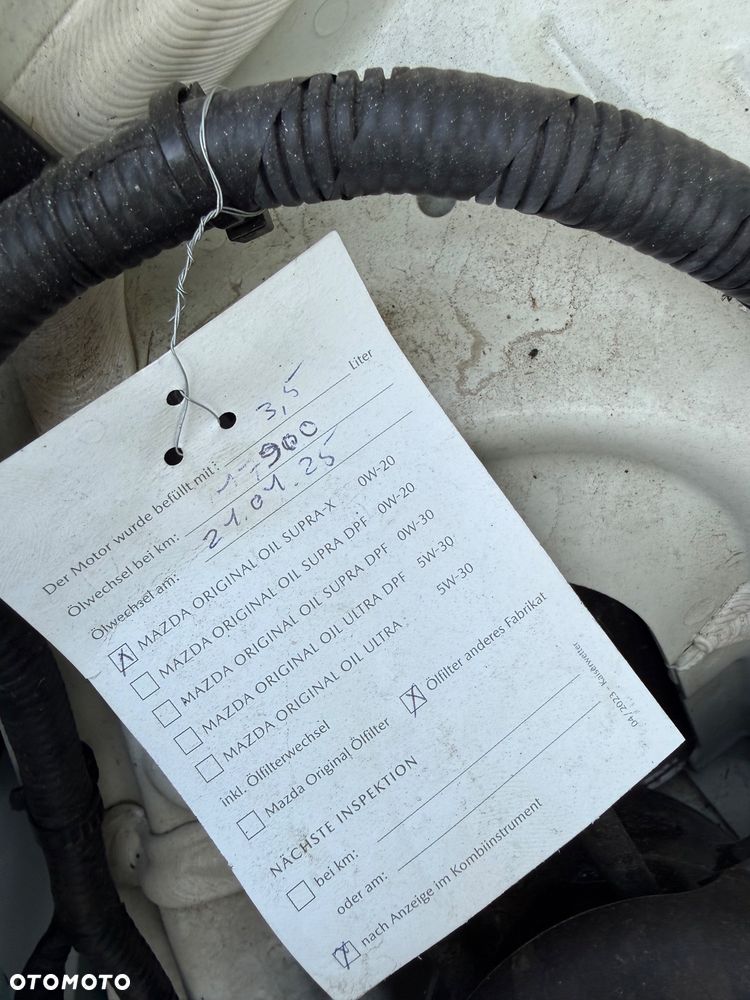 Der Motor wurde befüllt mit: 3,5 Liter
Ölwechsel bei km: 900
Ölwechsel am: 21.01.25
MAZDA ORIGINAL OIL SUPRA-X 0W-20
MAZDA ORIGINAL OIL SUPRA DPF 0W-20
MAZDA ORIGINAL OIL SUPRA DPF 0W-30
MAZDA ORIGINAL OIL ULTRA DPF 5W-30
MAZDA ORIGINAL OIL ULTRA 5W-30
inkl. Ölfilterwechsel
Mazda Original Ölfilter Ölfilter anderes Fabrikat
NÄCHSTE INSPEKTION
bei km:
oder am:
nach Anzeige im Kombiinstrument
04/2023 - Kaiserwetter
OTOMOTO